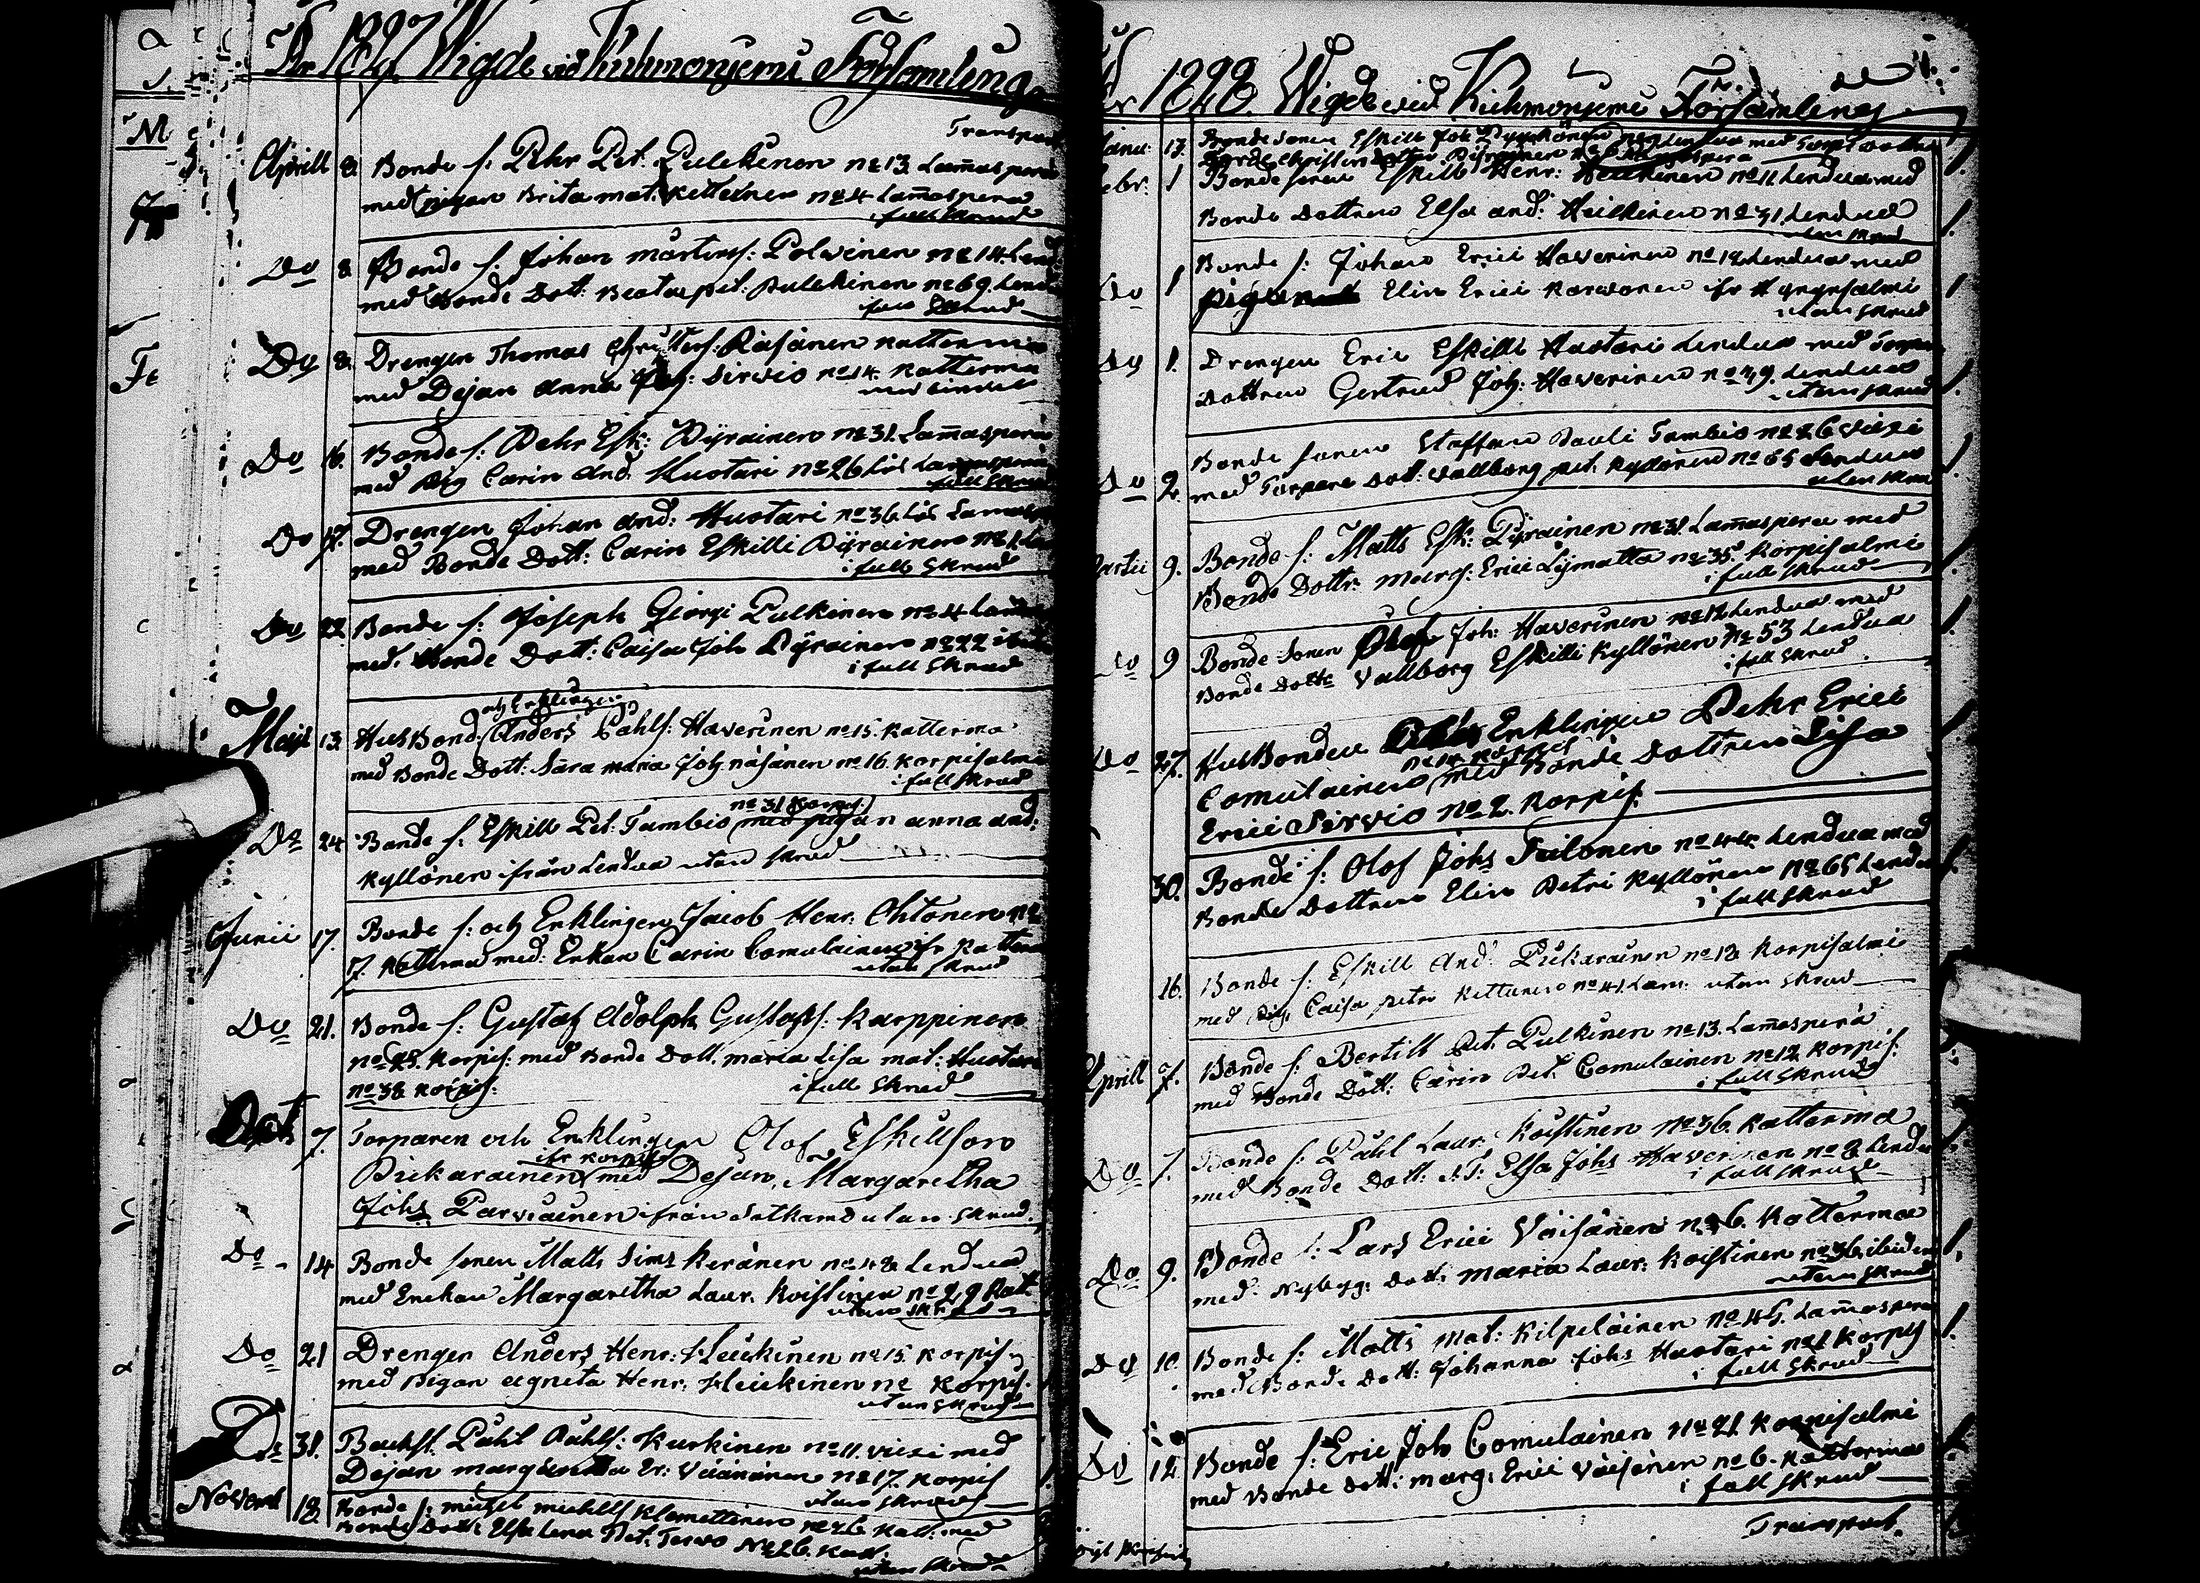 År 1827 Wigde vid Kuhmoniemi Församling
Transport
Aprill 8. Bonde s: Pehr Pet. Pulckinen No 13. Lam̄aspera
med pigan Brita Mat: Kettuinen No 4 Lam̄aspera
i full skrud
Do 8. Bonde s: Johan Mårtens: Polvinen No 14. Lend
med Bonde Dott: Beata Pet: Pulckinen No 69. Lend
full skrud
Do 8. Drengen Thomas Christers: Räisänen Katterma
med Dejan Anna Joh: Sirviö No 14. Katterma
Do 16. Bonde s: Pehr Esk: Pyräinen No 31. Lam̄aspera
med Pig Carin And: Huotari No 26 Lam̄aspera
full skrud
Do 17. Drengen Johan And: Huotari No 36
med Bonde Dott: Carin Eskilli Pyräinen No
i full skrud
Do 22 Bonde s: Joseph Giorgi Pulkinen No 4
med Bonde Dott: Caisa Joh Pyräinen No 22
i full skrud
och Enklingen
Maji 13. HusBond: Anders Påhls: Haverinen No 15. Katterma
med Bonde Dott: Sara Maria Joh Räisänen No 16. Korpisalmi
i full skrud
No 31 Korpis:
Do 24 Bonde s: Eskill Pet: Tambio med pigan Anna And:
Kyllönen ifrån Lendua utan skrud
Junii 17. Bonde s: och Enklingen Jacob Henr: Ohtonen No
17. Katterma med: Enkan Carin Comulainen ifr Katterma
utan skrud
Do 21. Bonde s: Gustaf Adolph Gustafs: Karppinen
No 28. Korpis: med Bonde Dott. Maria Lisa Mat: Huotari
No 38 Korpis: i full skrud
7. Torparen och Enklingen Olof Eskillson
ifr Korpis
Pickarainen med Dejan, Margaretha
Johs Parviainen ifrån Sotkamo utan skrud.
Do 14 Bonde sonen Matts Sims Keränen No 48 Lendua
med Enckan Margaretha Laur. Koistinen No 29 Kat:
utan skrud
Do 21 Drengen Anders Henr: Heickinen No 15. Korpis
med Pigan Agneta Henr: Heickinen No Korpis.
utan skrud
Do 31. Backst. Påhl Påhls: Kurkinen No 11. Viexi med
Dejan Margaretha Er: Väänänen No 17. Korpis
utan skrud
Novemb 18. Bonde s: Michel Michells Klemettinen No 26 Kat: med
Bonde Dott: Elsa Lena Pet. Tervo No 26. Katt:
utan skrud
År 1828. Wigde vid Kuhmoniemi Församling
Janu: 17. Bonde sonen Eskill Joh: med Torp Dotter
Febr: 1 Bonde sonen Eskill Henr: Heickinen No 11 Lendua med
Bonde Dottren Elsa And: Heickinen No 31 Lendua
utan skrud
Do 1 Bonde s: Johan Erici Haverinen No 12 Lendua med
Pigan Elin Erici Karvonen ifr Hyrynsalmi
utan skrud
Do 1. Drengen Eric Eskilli Huotari Lendua med Torpar
Dottren Gertrud Joh: Haverinen No 49. Lendua
utan skrud
Do 2 Bonde sonen Staffan Pauli Tambio No 26 Viexi
med Torpare Dott: Vallborg Pet. Kyllönen No 65 Lendua
utan skrud
Martii 9. Bonde s: Matts Esk: Pyräinen No 31 Lam̄aspera med
Bonde Dottr: Marg: Erici Lymatta No 35 Korpisalmi
i full skrud
Do 9 Bonde sonen Olof Joh: Haverinen No 12 Lendua med
Bonde Dottr Vallborg Eskilli Kyllönen No 53 Lendua
i full skrud
Do 27. HusBonden Enklingen Pehr Erici
Comulainen med Bonde Dottren Lisa
Erici Sirviö No 2. Korpis:
30. Bonde s: Olof Johs Piilonen No 44. Lendua med
Bonde Dottren Elin Petri Kyllönen No 65 Lendua
i full skrud
16. Bonde s: Eskill And: Pickarainen No 18 Korpisalmi
med Pig. Caisa Petri Kettunen No 41. Lam: utan skrud
Aprill 7. Bonde s: Bertill Pet. Pulkinen No 13. Lam̄asperä
med Bonde Dott: Carin Pet. Comulainen No 12 Korpis:
i full skrud
Do 7. Bonde s: Påhl Laur: Koistinen No 36. Katterma
med Bonde Dott: Elsa Johs Haverinen No 8 Lendua
i full skrud
Do 9. Bonde s: Lars Erici Väisänen No 6. Katterma
med Nybygg: Dott: Maria Laur: Koistinen No 36 ibidem
utan skrud
Do 10. Bonde s: Matts Mat: Kilpeläinen No 45. Lam̄aspera
med Bonde Dott: Johanna Johs Huotari No 1 Korpis
i full skrud
Do 12 Bonde s: Eric Joh Comulainen No 21. Korpisalmi
med Bonde Dott: Marg: Erici Väisänen No 6. Katterma
i full skrud
Transport.